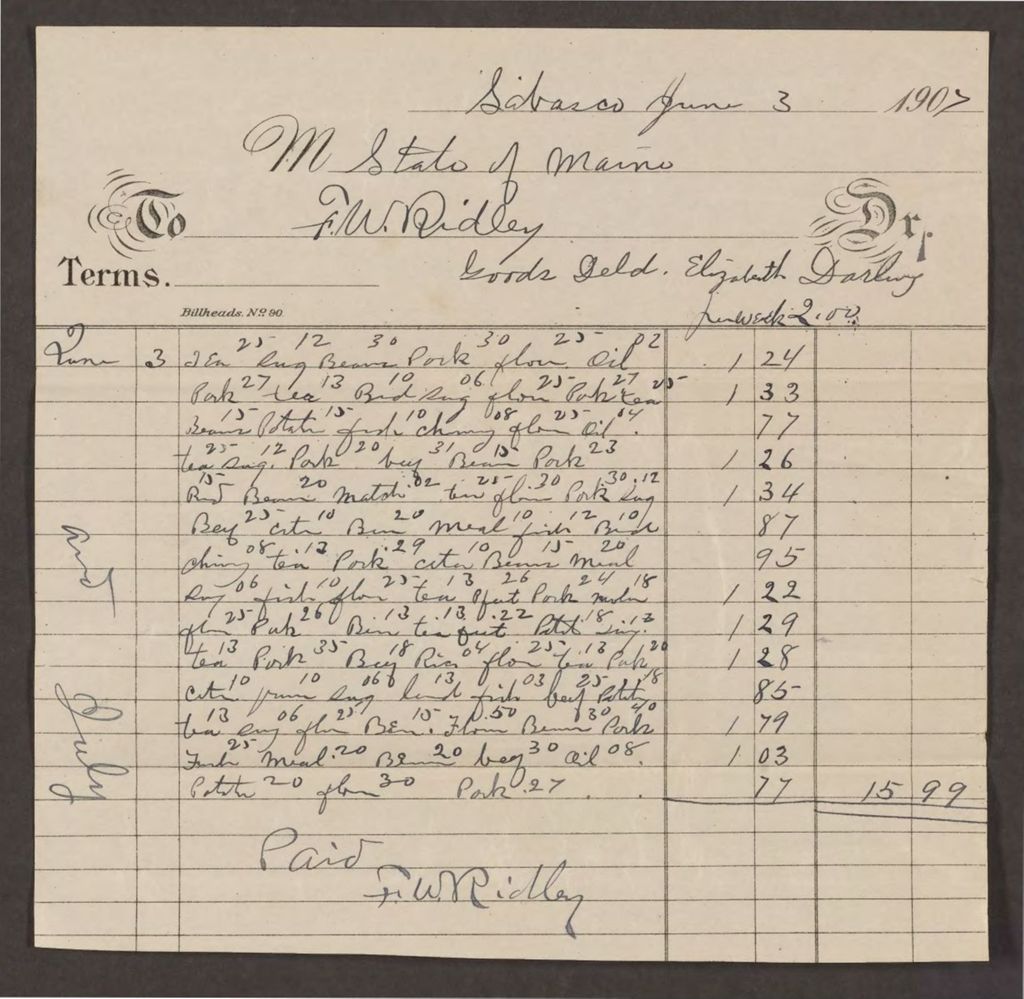 Sebasco June 3 1907
M State of Maine
To F. W. Ridley Dr,
Terms. Goods Deld. Elizabeth Darling
Billheads. No. 90 per week 2.00
June 3 Tea 25 Sug 12 Beans 30 Pork 30 flour 25 Oil 02 1 24
Pork 27 tea 13 Bred 10 Sug 06 flour 25 Pork 27 tea 25 1 33
Beans 15 Potato 15 fish 10 08 flour 25 Oil 04 77
tea 25 Sug. 12 Pork 20 31 Bean 15 Pork 23 1 26
15 Bean 20 Match 02 tea 25 flour 30 Pork 30 Sug .12 1 34
25 10 20 Meal 10 fish 12 10 87
08 tea .13 Pork .29 10 Beans 15 Meal 20 95
and Sug 06 fish 10 flour 25 tea 13 26 Pork 24 18 1 22
flour 25 Pork 26 .13 tea .13 .22 18 Sug. 12 1 29
tea 13 Pork 35 18 Rice 04 flour 25 tea .13 Pork 20 1 28
10 10 Sug 06 13 fish 03 beef 25 18 85
July tea 13 Sug 06 flour 25 15 Flour .50 Beans 30 Pork 40 1 79
Fish 25 Meal .20 20 30 Oil 08. 1 03
Potato 20 flour 30 Pork .27 77 15 99
Paid
F. W. Ridley